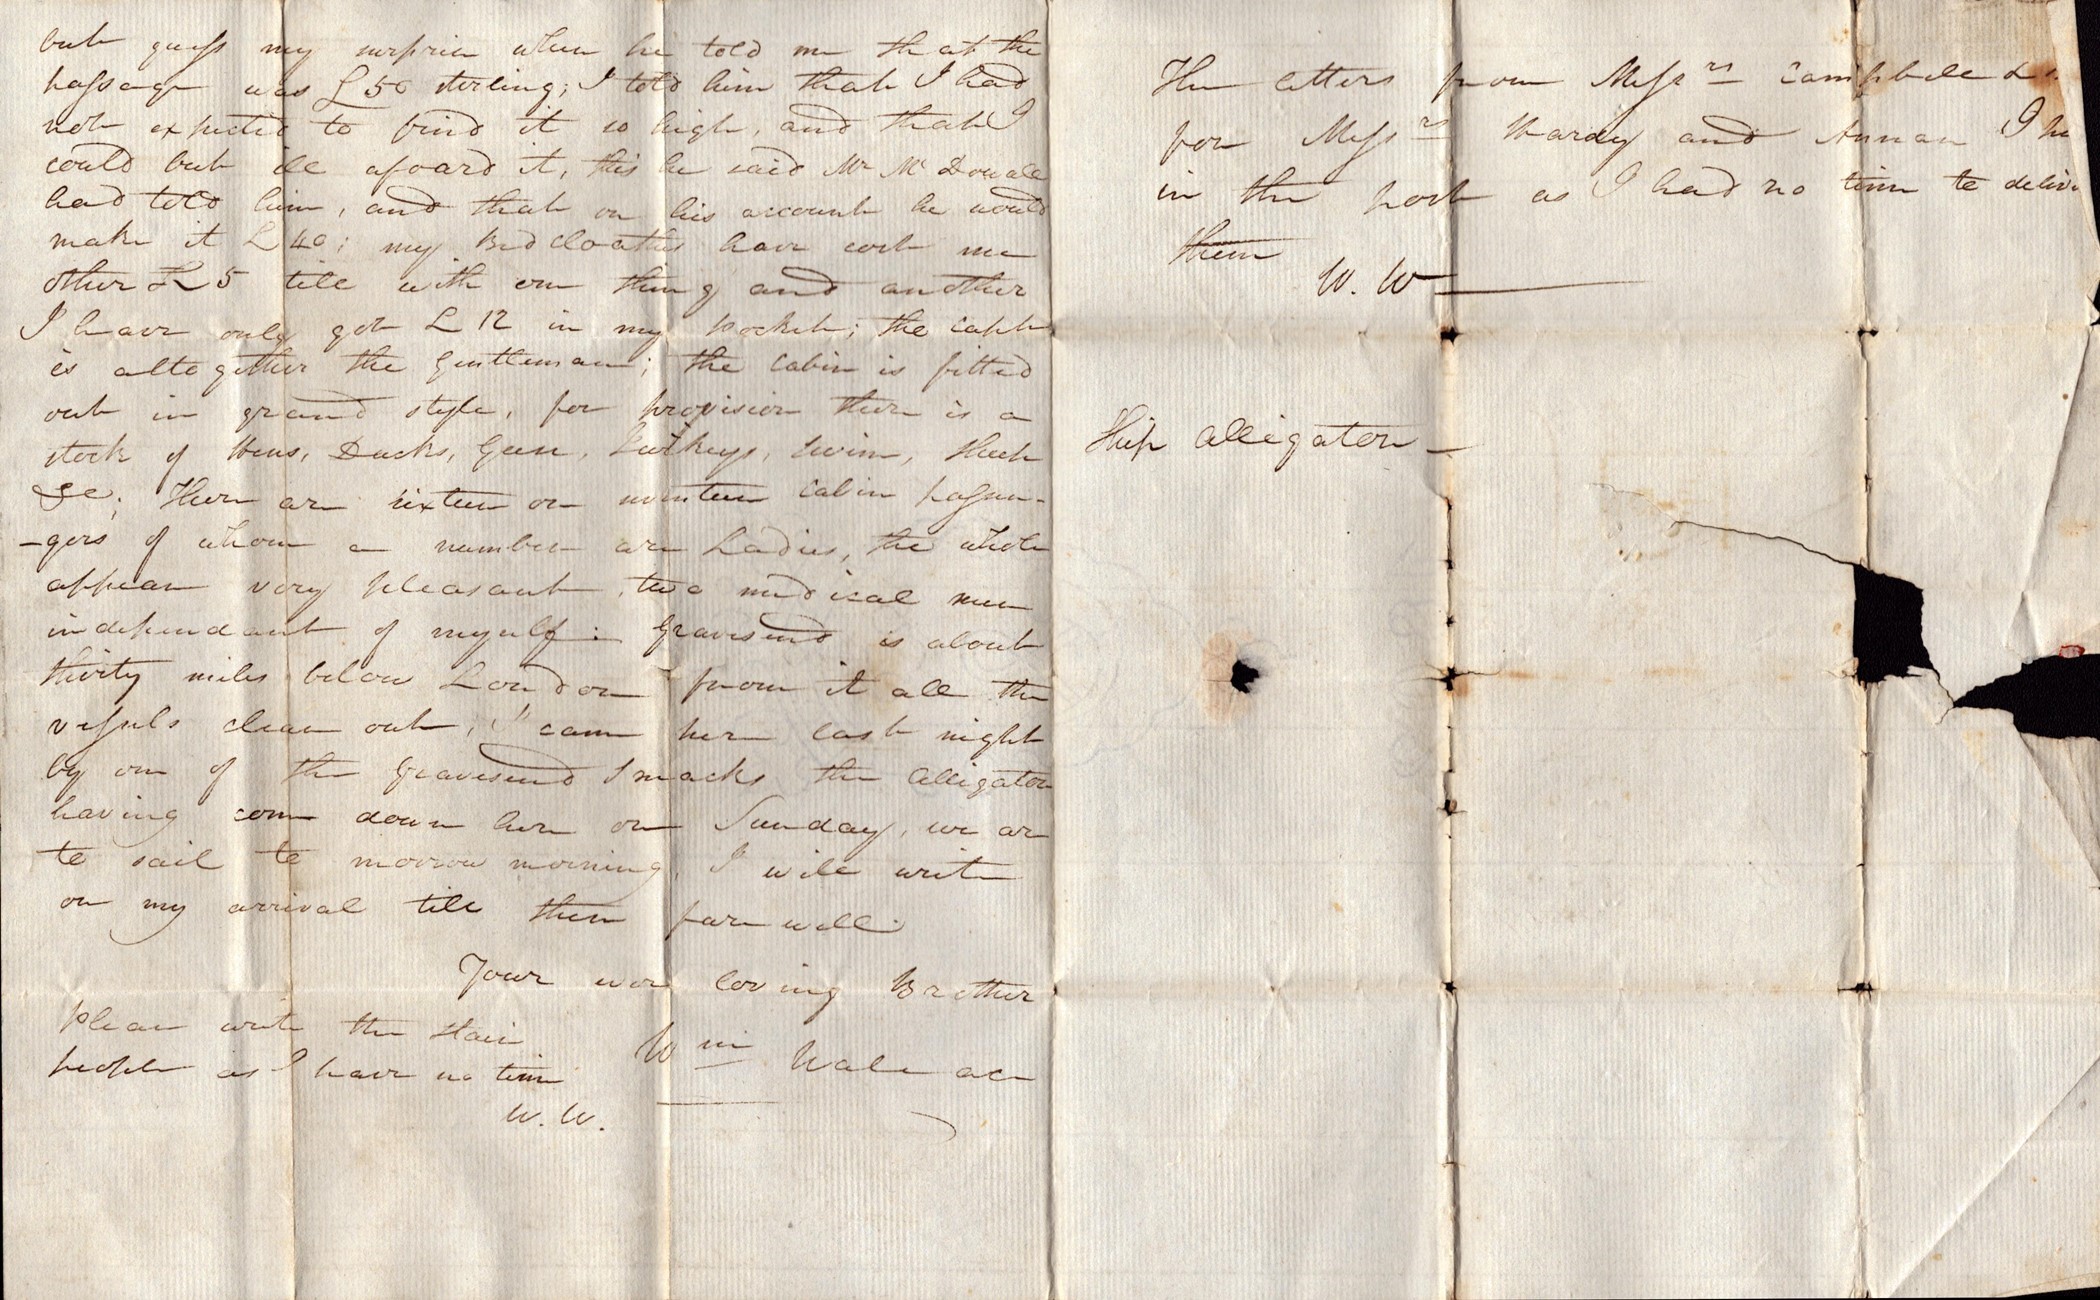 but guess my surprise when he told me that the
passage was £50 sterling; I told him that I had
not expected to find it so high, and that I
could but ill afoard it, this he said Mr McDouall
had told him, and that on his account he would
make it £40; my Bed cloathes have cost me
other £5 till with one thing and another
I have only got £12 in my pocket; the Capt
is altogether the Gentleman; the Cabin is fitted
out in grand style, for provision there is a
stock of Hens, Ducks, Geese, Turkeys, Swine, Sheep
&c; There are sixteen or seventeen Cabin passen-
-gers of whom a number are Ladies, the whole
appear very pleasant, two medical men
independant of myself: Gravesend is about
thirty miles below London from it all the
vessels clear out, I came here last night
by one of the Gravesend Smacks the Alligator
having come down here on Sunday, we are
to sail to morrow morning, I will write
on my arrival till then farewell.
Your ever loving Brother
Wm Wallace
Please write the Stair
people as I have no time
W. W.
The letters from Messrs Campbell &
for Messrs Hardy and Annan I
in the post as I had no time to deliv
them
W. W
Ship Alligator